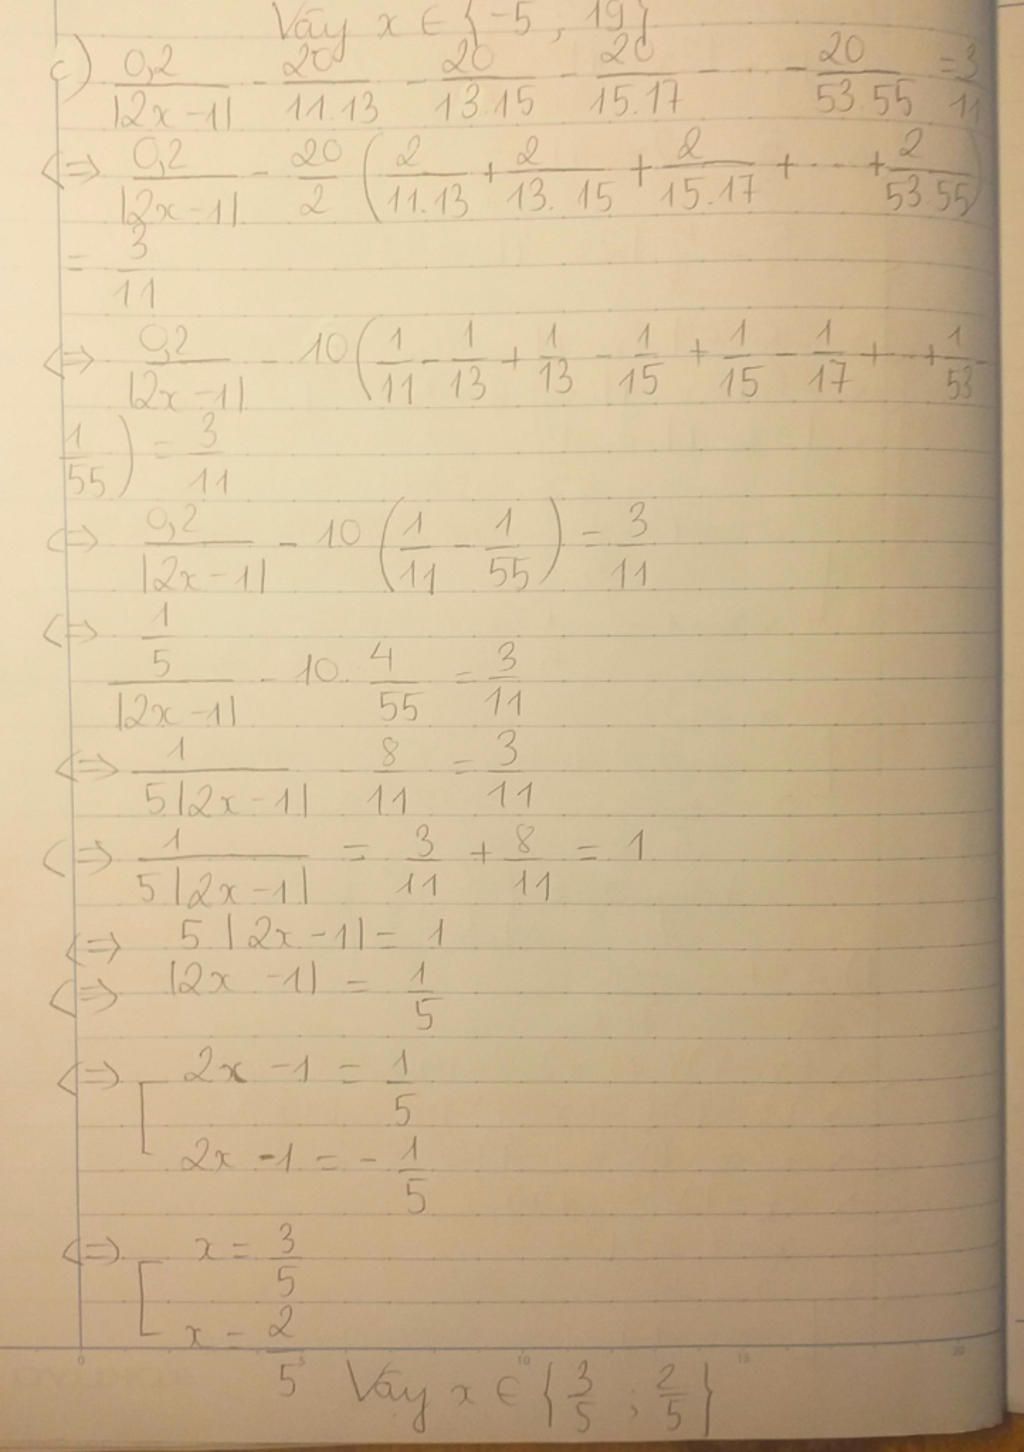 Vậy x ∈ {-5 , 19}
c) 0,2/|2x-1| - 20/11.13 - 20/13.15 - 20/15.17 - ... - 20/53.55 = 3/11
<=> 0,2/|2x-1| - 20/2 (2/11.13 + 2/13.15 + 2/15.17 + ... + 2/53.55)
= 3/11
<=> 0,2/|2x-1| - 10 (1/11 - 1/13 + 1/13 - 1/15 + 1/15 - 1/17 + ... + 1/53 -
1/55) = 3/11
<=> 0,2/|2x-1| - 10 (1/11 - 1/55) = 3/11
<=> 1/5/|2x-1| - 10. 4/55 = 3/11
<=> 1/5|2x-1| - 8/11 = 3/11
<=> 1/5|2x-1| = 3/11 + 8/11 = 1
<=> 5.|2x-1| = 1
<=> |2x-1| = 1/5
<=> [ 2x-1 = 1/5
2x-1 = -1/5
<=> [ x = 3/5
x = 2/5
0 5 10 15 20
Vậy x ∈ {3/5 ; 2/5}